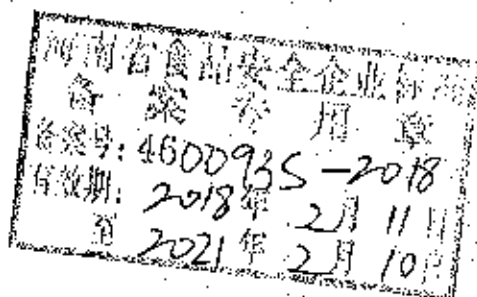 海南省食品安全企业标准
备案专用章
备案号：460093S-2018
有效期：2018年2月11日
至2021年2月10日